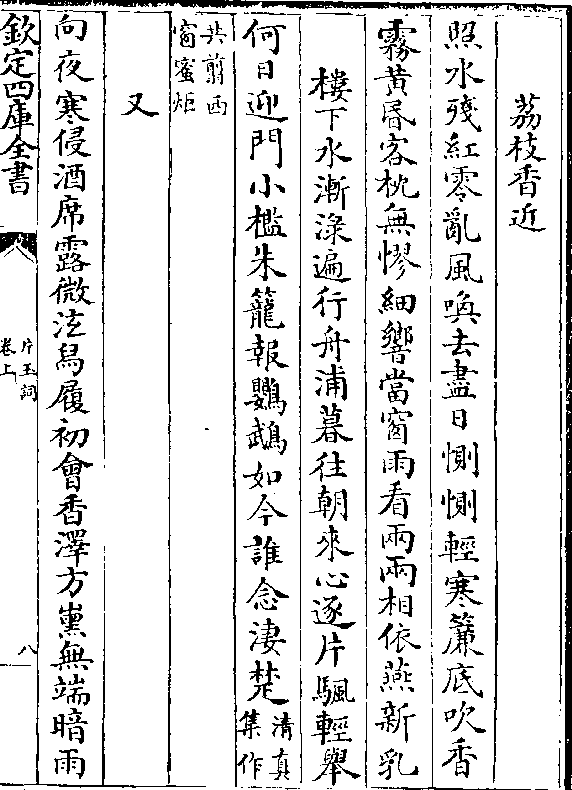 荔枝香近
照水殘紅零亂風喚去盡日惻惻輕寒簾底吹香
霧黄昬客枕無憀細響當窗雨看兩兩相依燕新乳
樓下水漸渌遍行舟浦暮往朝來心逐片颿輕舉
何日迎門小檻朱籠報鸚鵡如今誰念淒楚清真集作
共翦西窗蜜炬
又
向夜寒侵酒席露微泫舄履初會香澤方薫無端暗雨
欽定四庫全書
片玉詞
卷上
八